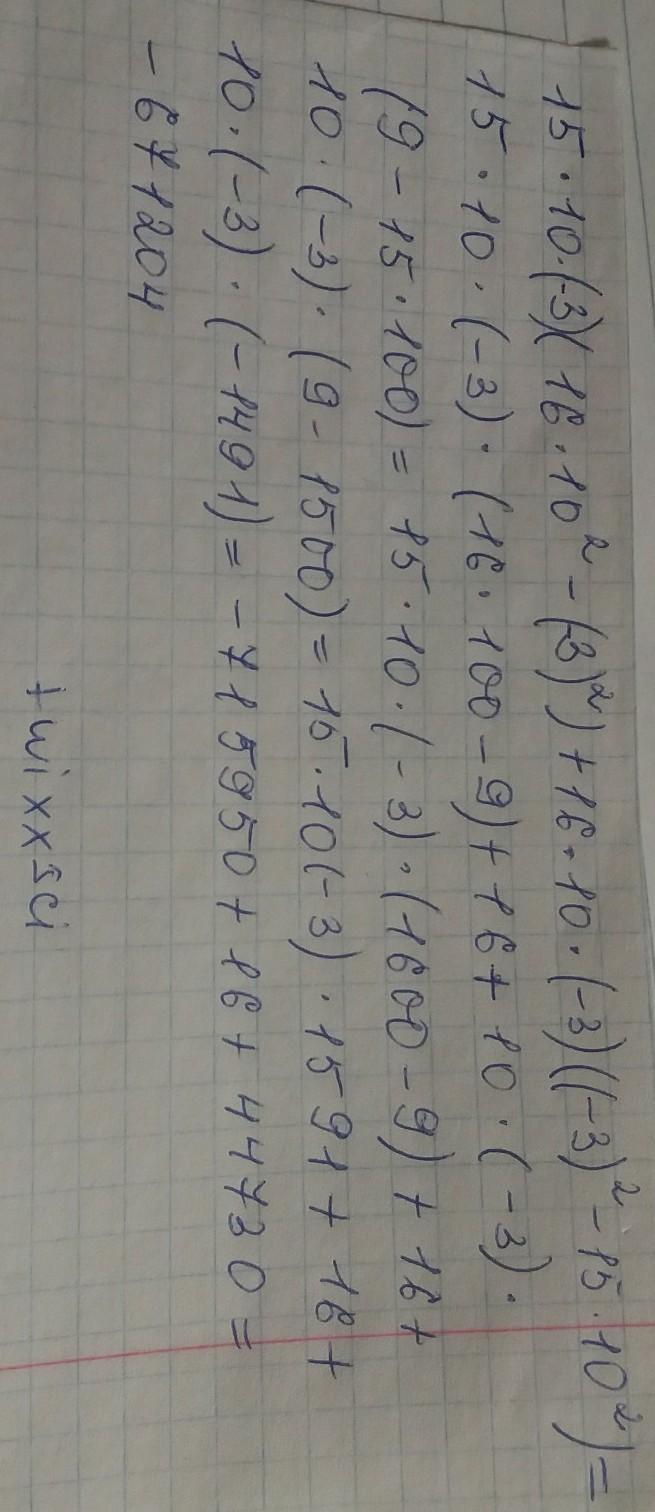 15·10·(-3)(16·10² - (3)²) + 16·10·(-3)((-3)² - 15·10²) =
15·10·(-3)·(16·100 - 9) + 16 + 10·(-3)·
(9 - 15·100) = 15·10·(-3)·(1600 - 9) + 16 +
10·(-3)·(9 - 1500) = 15·10(-3)·1591 + 16 +
10·(-3)·(-1491) = -715950 + 16 + 44730 =
-671204
twixx5ci